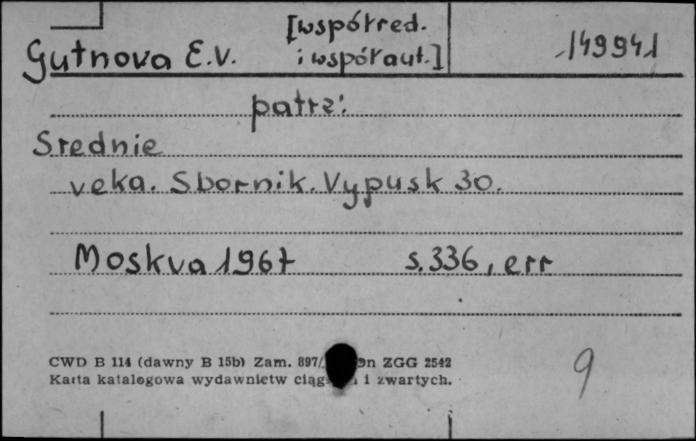 [współred.
Gutnova E.V. i współaut.] 149941
patrz:
Srednie
veka. Sbornik. Vypusk 30.
Moskva 1967 s. 336, err
CWD B 114 (dawny B 15b) Zam. 897/ ZGG 2542
Karta katalogowa wydawnictw i zwartych.
9